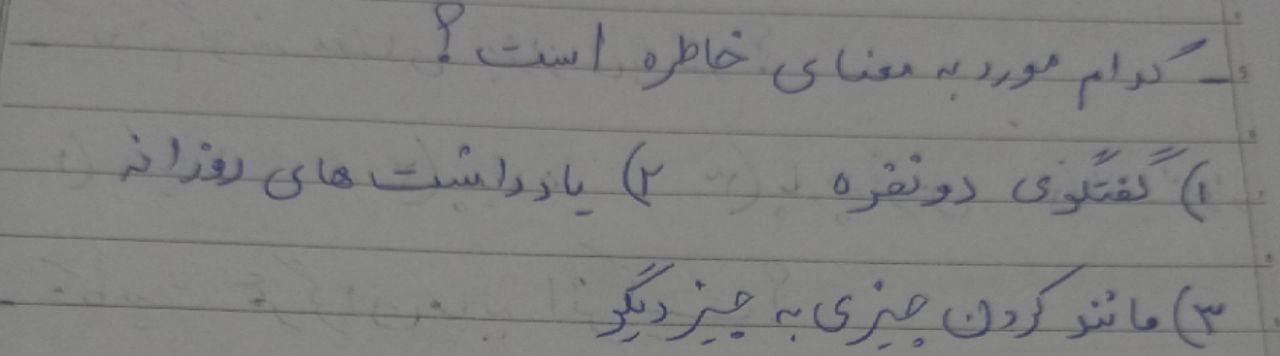 - کدام مورد به معنای خاطره است؟
۱) گفتگوی دونفره ۲) یادداشت های روزانه
۳) مانند کردن چیزی به چیز دیگر